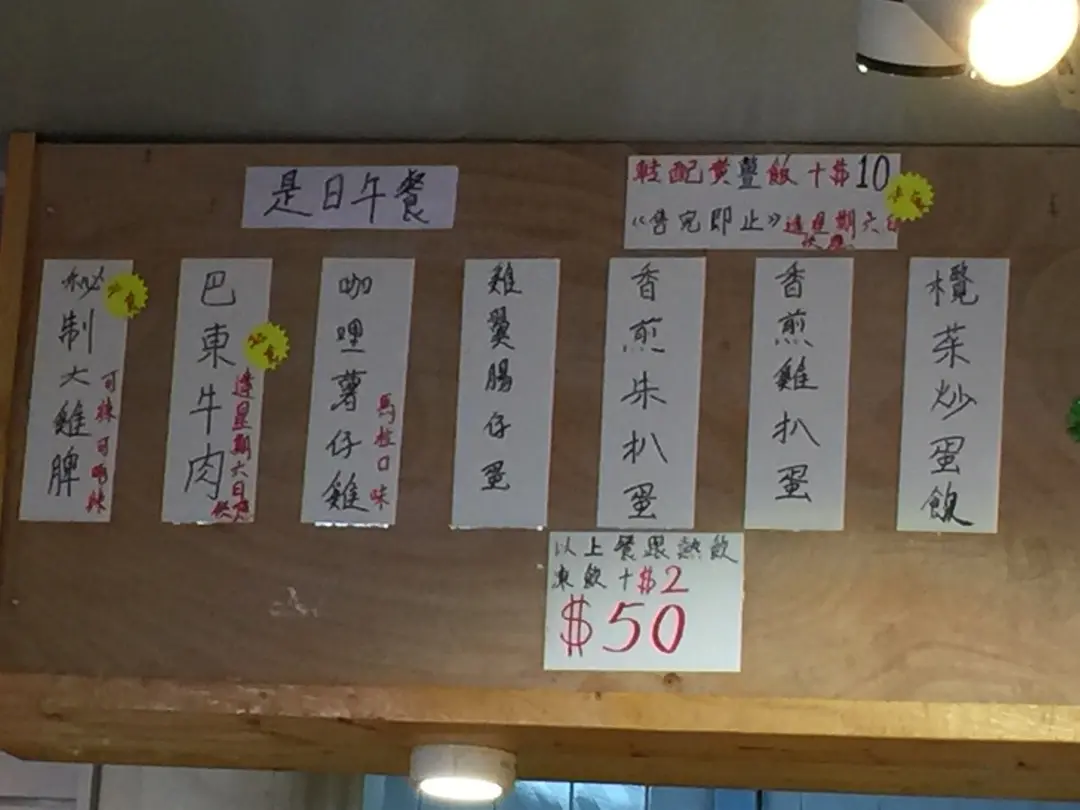 是日午餐
轉配黃薑飯+$10
《售完即止》逢星期六日
供應
秘制大雞脾
可辣可唔辣
巴東牛肉
逢星期六日
供應
咖喱薯仔雞
馬拉口味
雞翼腸仔蛋
香煎朱扒蛋
香煎雞扒蛋
欖菜炒蛋飯
以上餐跟熱飲
凍飲+$2
$50